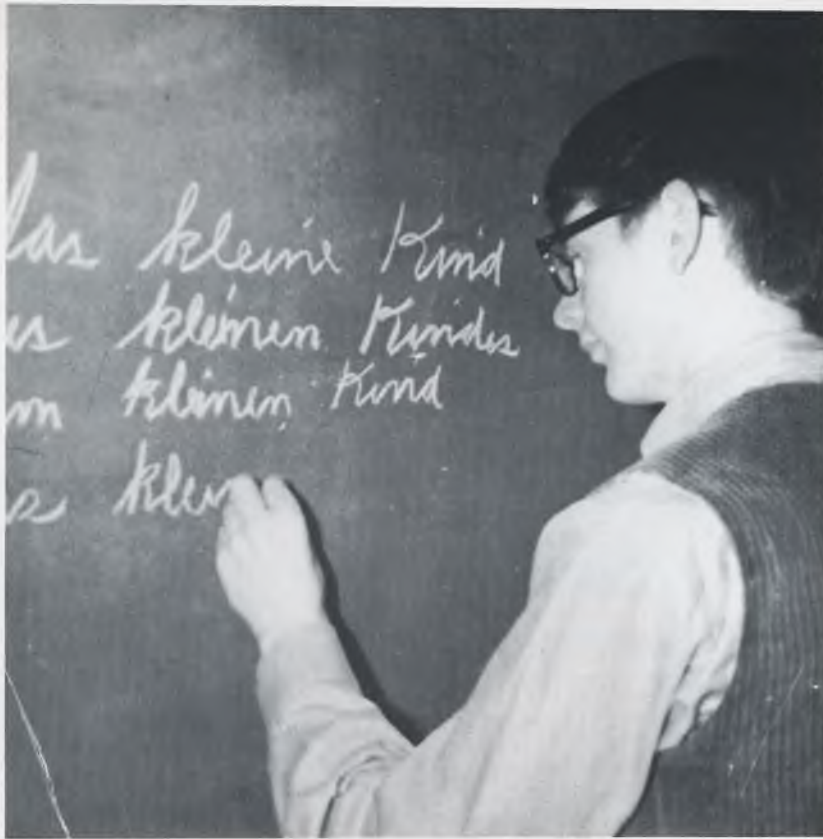 las kleine Kind
es kleinen Kindes
m kleinen Kind
s klein